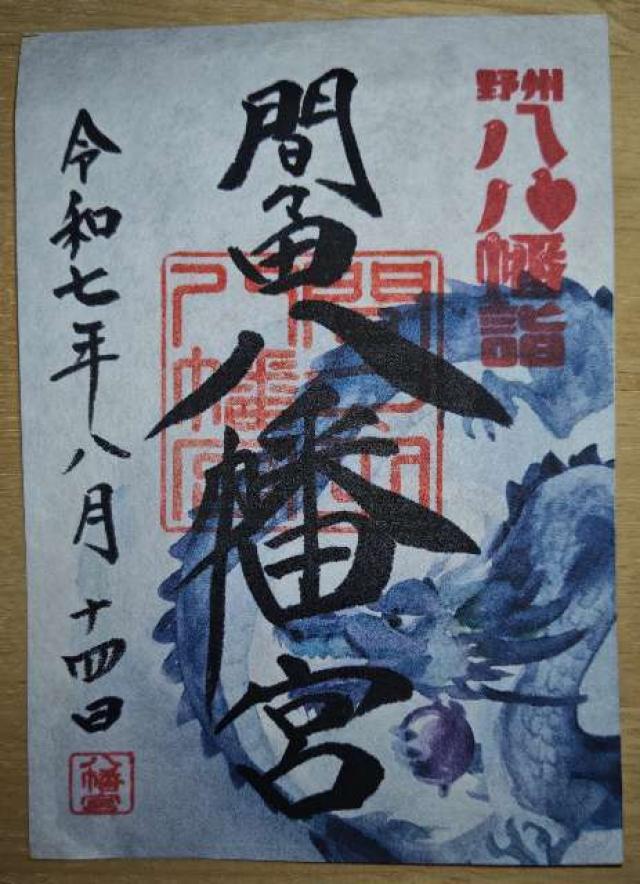 野州
八八幡詣
間々田八幡宮
間々田
八幡宮
令和七年八月十四日
八幡宮